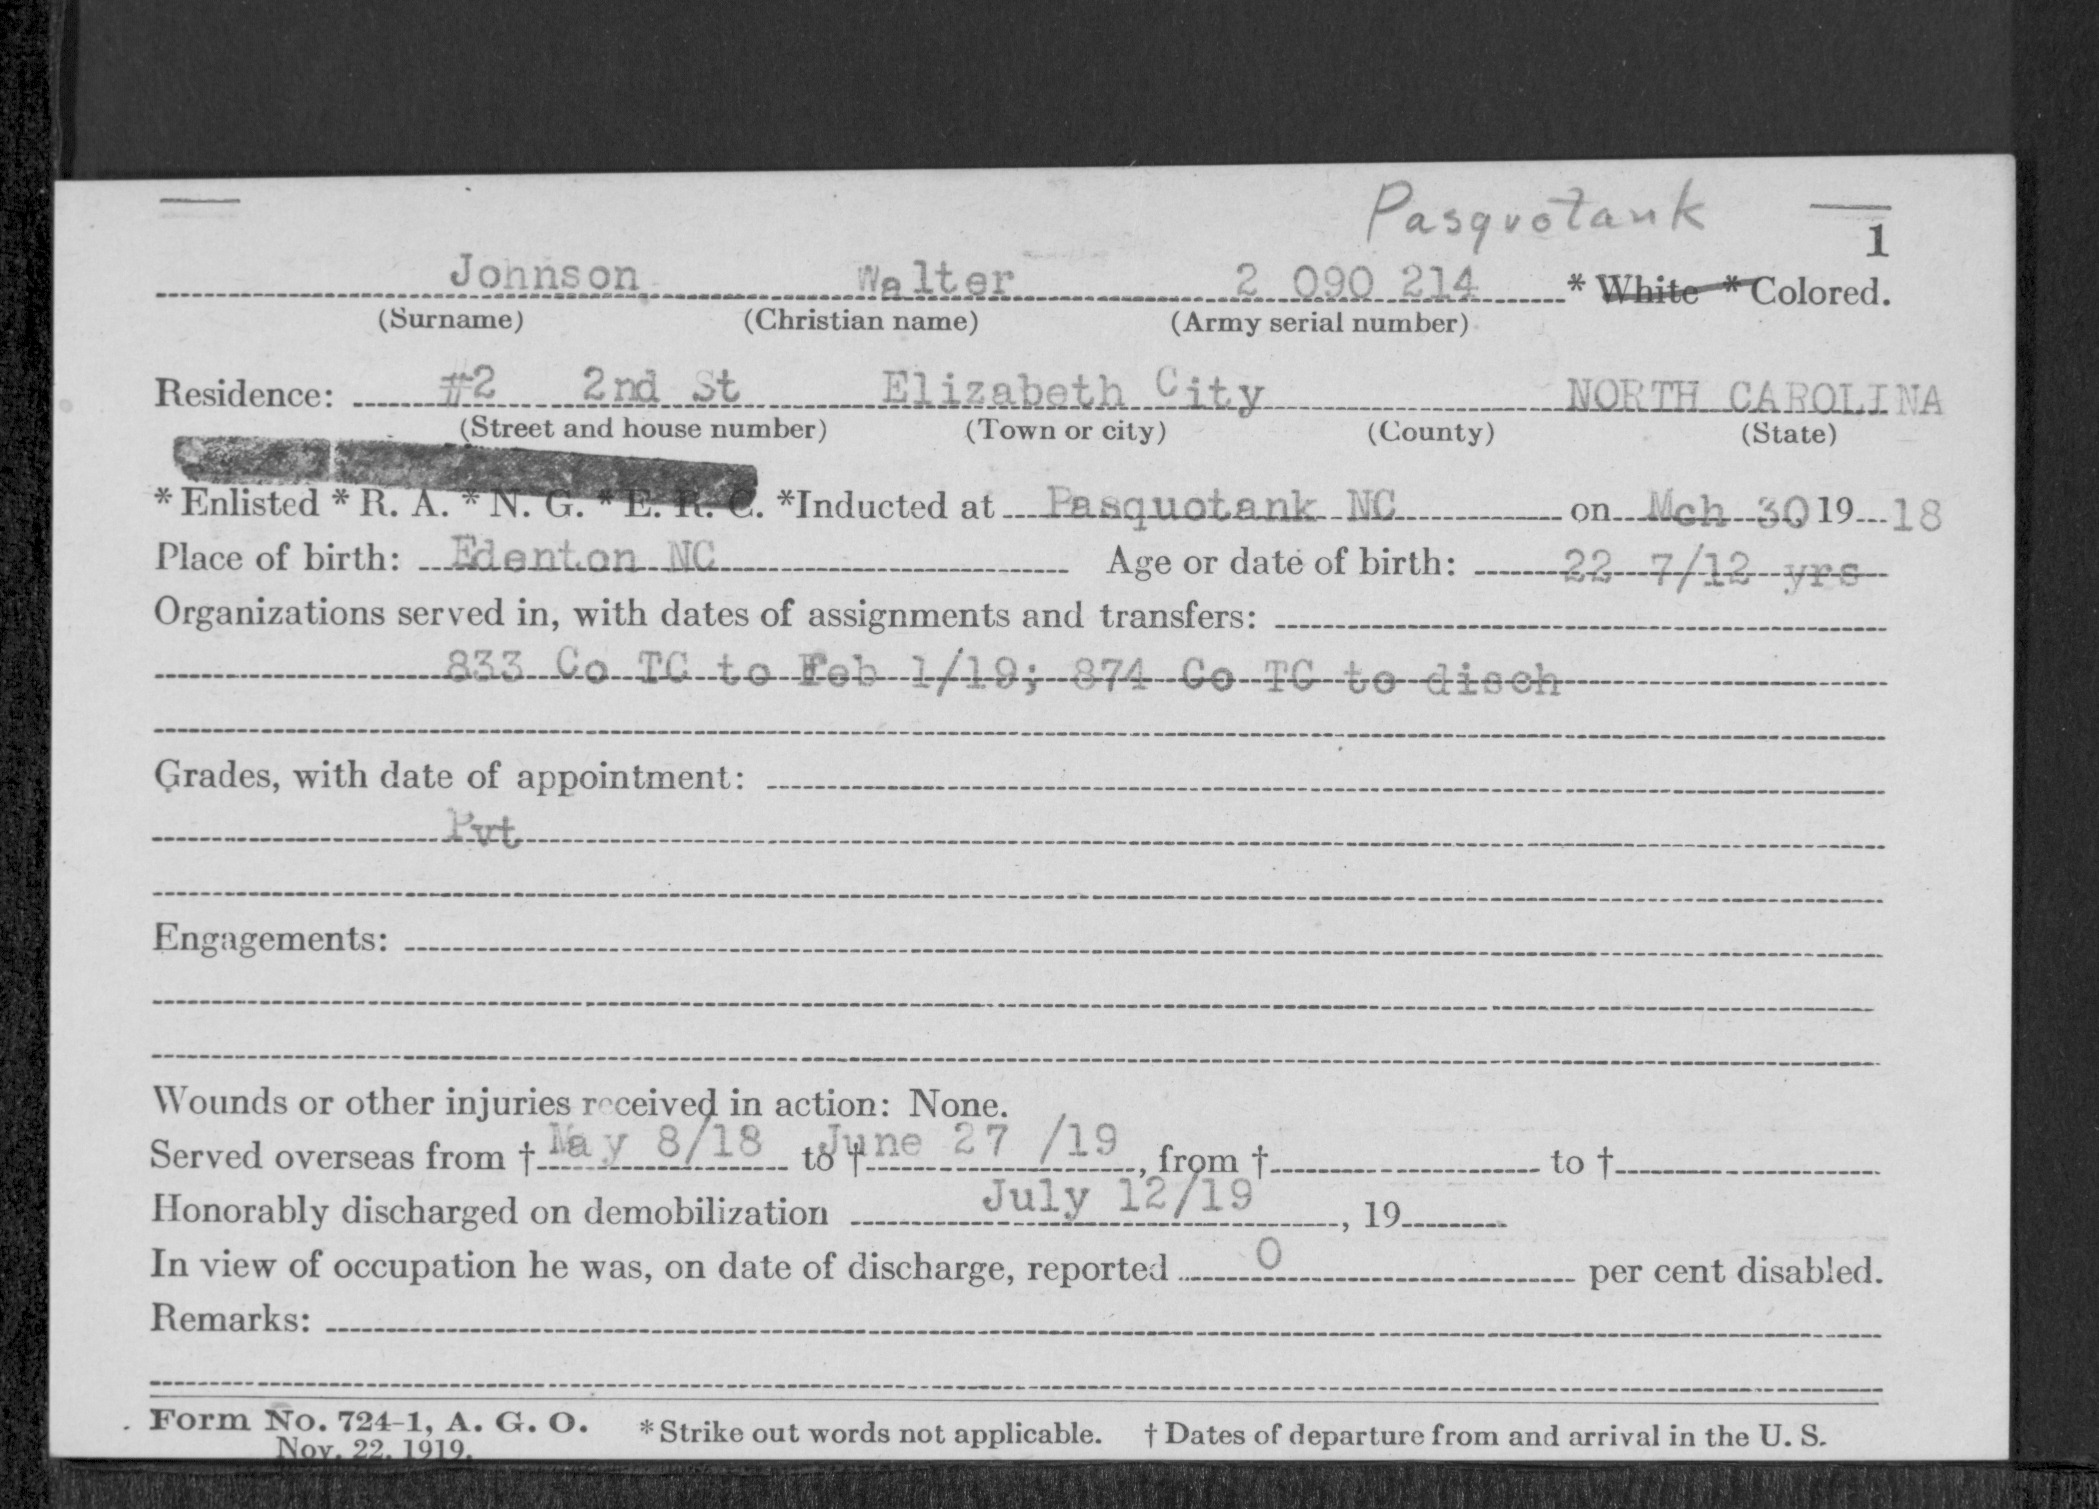 Pasquotank
1
Johnson, Walter 2 090 214 * White * Colored.
(Surname) (Christian name) (Army serial number)
Residence: #2 2nd St Elizabeth City NORTH CAROLINA
(Street and house number) (Town or city) (County) (State)
* Enlisted * R. A. * N. G. * E. R. C. *Inducted at Pasquotank NC on Mch 30 19 18
Place of birth: Edenton NC Age or date of birth: 22 7/12 yrs
Organizations served in, with dates of assignments and transfers:
833 Co TC to Feb 1/19; 874 Co TC to disch
Grades, with date of appointment:
Pvt
Engagements:
Wounds or other injuries received in action: None.
Served overseas from † May 8/18 to † June 27 /19, from † to †
Honorably discharged on demobilization July 12/19, 19
In view of occupation he was, on date of discharge, reported 0 per cent disabled.
Remarks:
Form No. 724-1, A. G. O. * Strike out words not applicable. † Dates of departure from and arrival in the U. S.
Nov. 22, 1919.